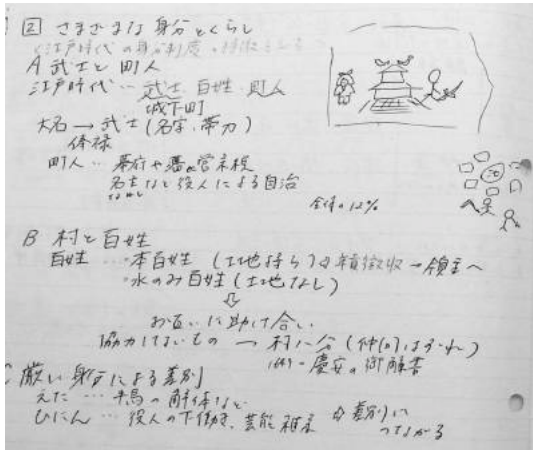 2 さまざまな身分とくらし
江戸時代の身分制度の特徴
A 武士と町人
江戸時代… 武士 百姓 町人
城下町
大名 → 武士 (名字、帯刀)
俸禄
町人… 幕府や藩に営業税
名主など役人による自治
なぬし
全体の12%
B 村と百姓
百姓 …・本百姓 (土地持ち) 年貢徴収 → 領主へ
・水のみ百姓 (土地なし)
⇩
お互いに助け合い
協力しないもの → 村八分 (仲間はずれ)
1649~慶安の御触書
C 厳しい身分による差別
えた … 牛馬の解体など
ひにん … 役人の下働き、芸能 ⇨ 差別に
つながる